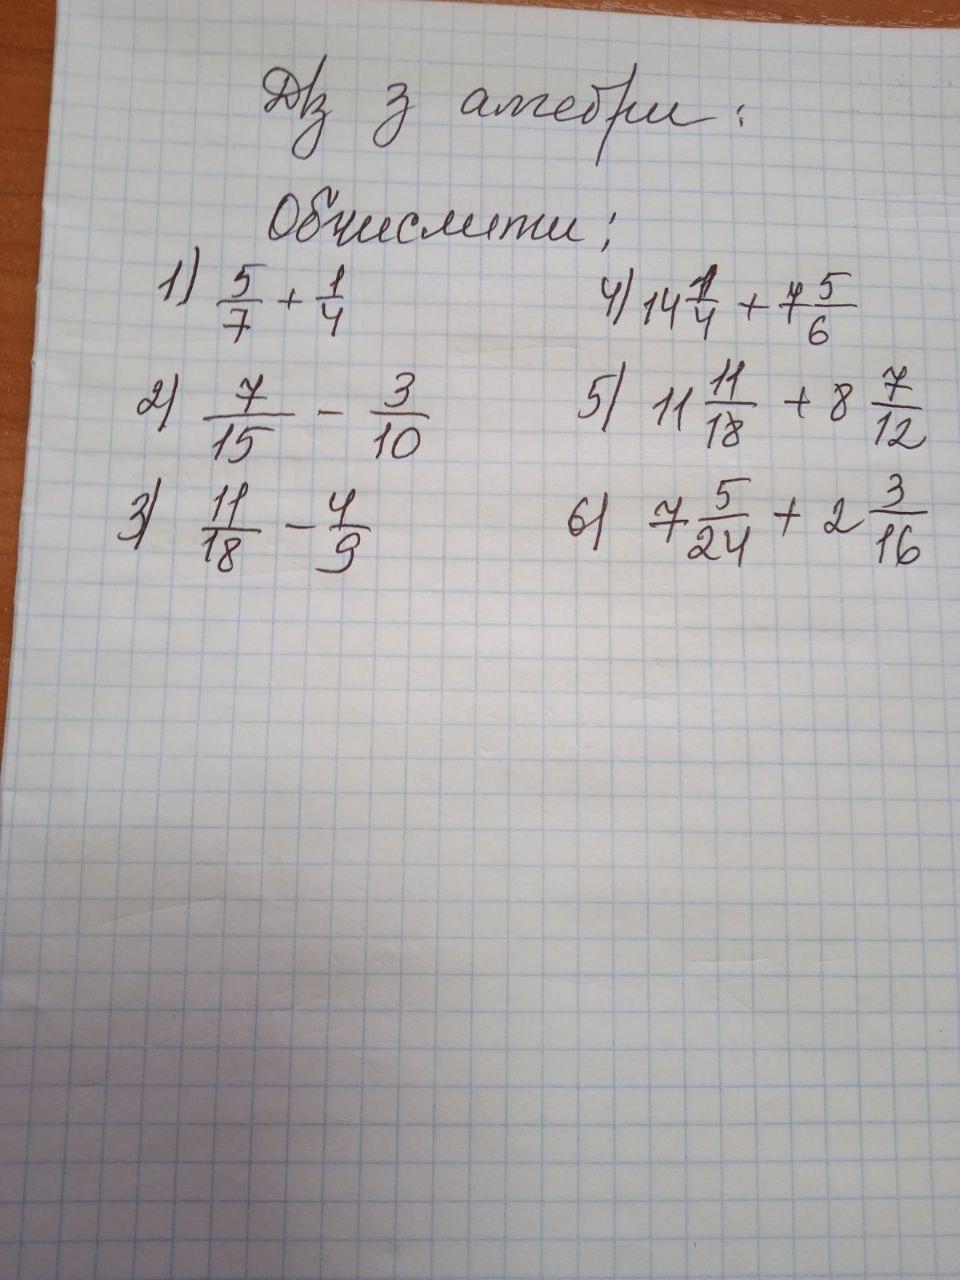 Д/з з алгебри:
Обчислити:
1) 5/7 + 1/4
2) 7/15 - 3/10
3) 11/18 - 4/9
4) 14 1/4 + 7 5/6
5) 11 11/18 + 8 7/12
6) 7 5/24 + 2 3/16